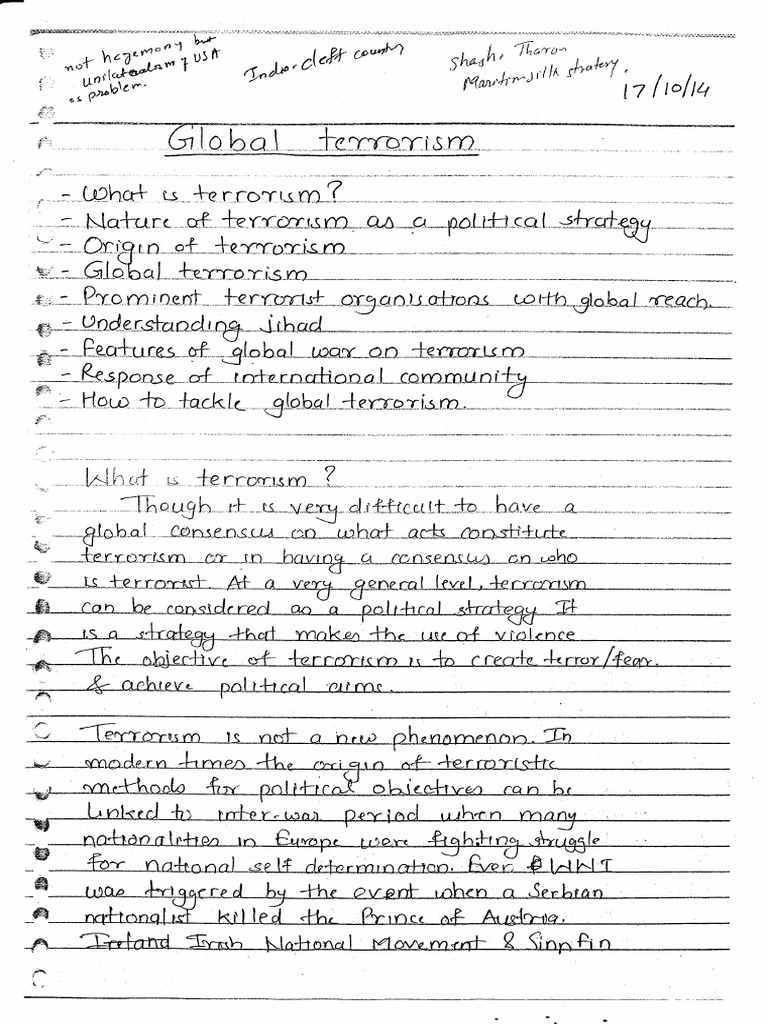 not hegemony but
unilateralism of USA
is problem.
India-cleft country
Shashi Tharoor
Maritime silk strategy.
17/10/14
Global terrorism
- What is terrorism?
- Nature of terrorism as a political strategy
- Origin of terrorism
- Global terrorism
- Prominent terrorist organisations with global reach.
- Understanding jihad
- Features of global war on terrorism
- Response of international community
- How to tackle global terrorism.
What is terrorism?
Though it is very difficult to have a
global consensus on what acts constitute
terrorism or in having a consensus on who
is terrorist. At a very general level, terrorism
can be considered as a political strategy It
is a strategy that makes the use of violence
The objective of terrorism is to create terror/fear.
& achieve political aims.
Terrorism is not a new phenomenon. In
modern times the origin of terroristic
methods for political objectives can be
linked to inter-war period when many
nationalities in Europe were fighting struggle
for national self determination. Even WWI
was triggered by the event when a Serbian
nationalist killed the Prince of Austria.
Ireland Irish National Movement & Sinnfin